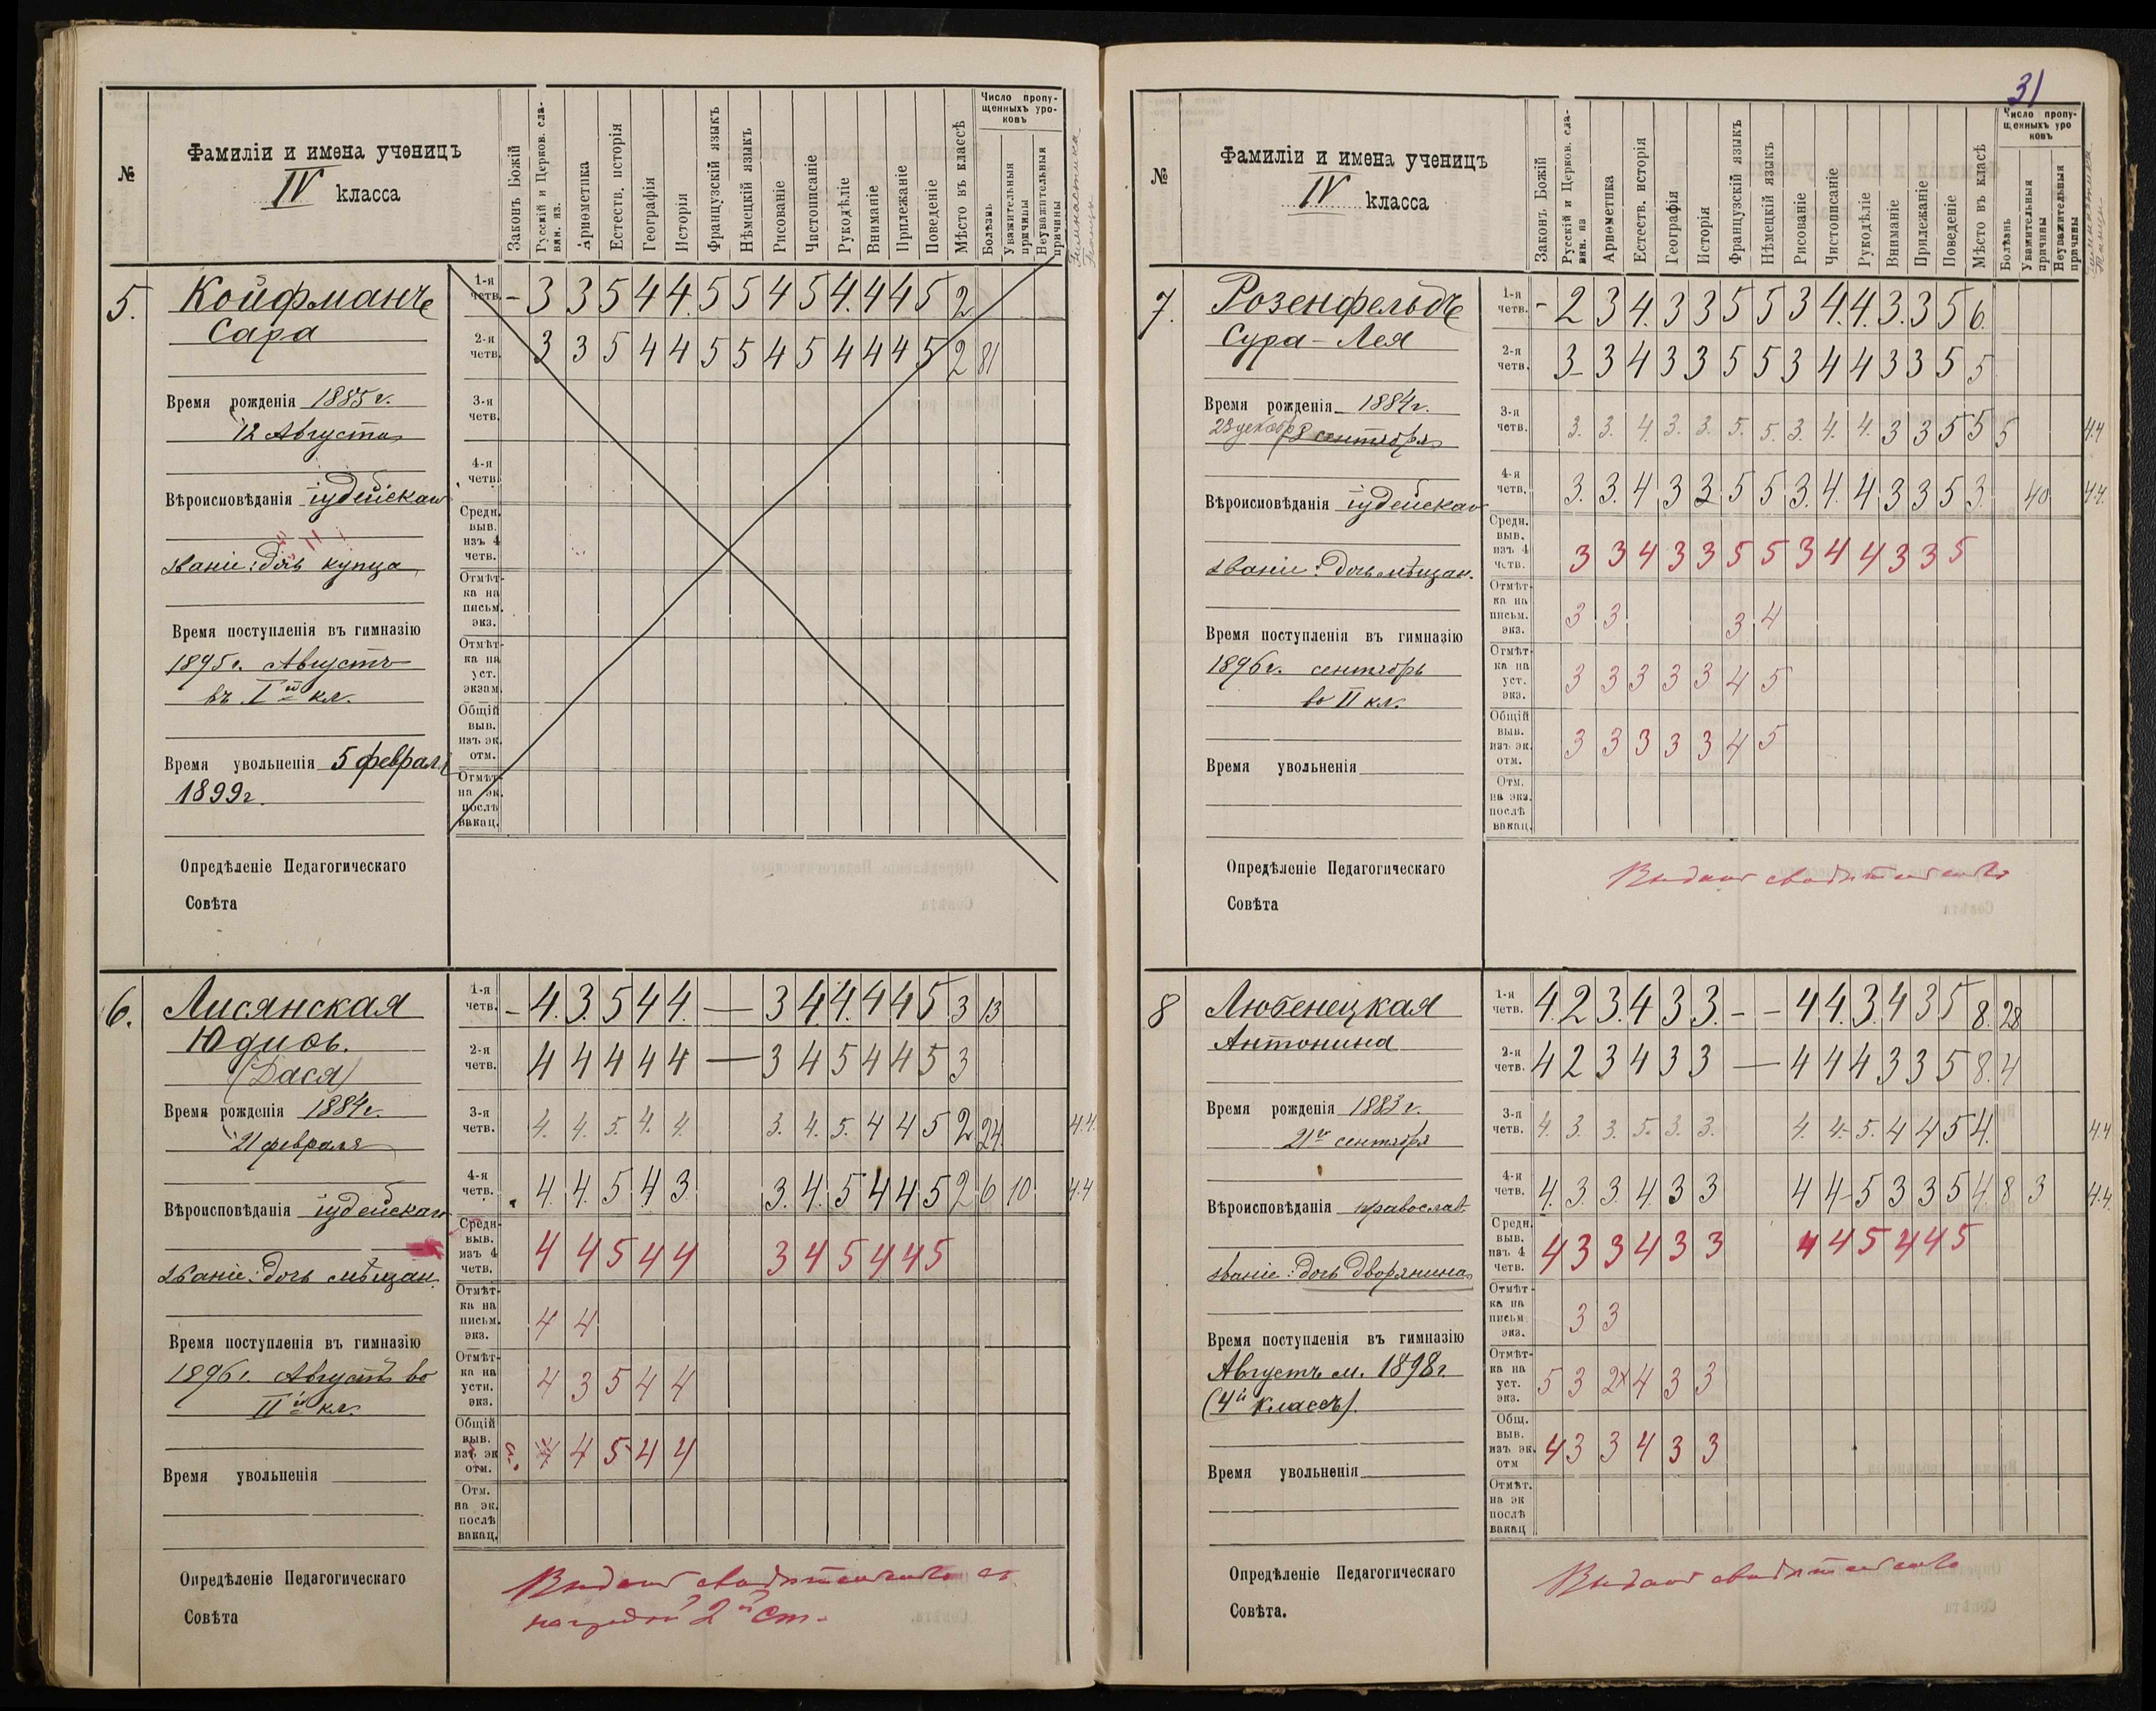 31
№
Фамиліи и имена ученицъ
IV класса
Законъ Божій
Русскій и Церков. сла-
вян. яз.
Ариѳметика
Естеств. исторія
Географія
Исторія
Французскій языкъ
Нѣмецкій языкъ
Рисованіе
Чистописаніе
Рукодѣліе
Вниманіе
Прилежаніе
Поведеніе
Мѣсто въ классѣ
Число пропу-
щенныхъ уро-
ковъ
Болѣзнь
Уважительныя
причины
Неуважительныя
причины
Гимнастика
Танцы
5.
Койфманъ
Сара
Время рожденія 1885 г.
12 Августа
Вѣроисповѣданія іудейскаго
званіе: дочь купца
Время поступленія въ гимназію
1895 г. Августъ
въ Iй кл.
Время увольненія 5 феврал.
1899 г.
Опредѣленіе Педагогическаго
Совѣта
1-я
четв. - 3 3 5 4 4. 5 5 4 5 4. 4 4 5 2
2-я
четв. 3 3 5 4 4 5 5 4 5 4 4 4 5 2 81
3-я
четв.
4-я
четв.
Средн.
выв.
изъ 4
четв.
Отмѣт-
ка на
письм.
экз.
Отмѣт-
ка на
уст.
экзам.
Общій
выв.
изъ эк.
отм.
Отмѣт.
на эк.
послѣ
вакац.
6.
Лисянская
Юдиѳь.
(Дася)
Время рожденія 1884 г.
21 февраля
Вѣроисповѣданія іудейскаго
званіе: дочь мѣщан.
Время поступленія въ гимназію
1896 г. Августъ во
IIй кл.
Время увольненія
Опредѣленіе Педагогическаго
Совѣта
1-я
четв. - 4. 3. 5 4 4. — 3 4. 4. 4 4 5 3 13
2-я
четв. 4 4 4 4 4 — 3 4 5 4 4 5 3
3-я
четв. 4. 4. 5. 4. 4. 3. 4. 5. 4 4 5 2 24. 4.4.
4-я
четв. 4. 4. 5 4 3. 3. 4. 5 4 4 5 2 6 10 4.4
Средн.
выв.
изъ 4
четв. 4 4 5 4 4 3 4 5 4 4 5
Отмѣт-
ка на
письм.
экз. 4 4
Отмѣт-
ка на
устн.
экз. 4 3 5 4 4
Общій
выв.
изъ эк
отм. 4 4 5 4 4
Отм.
на эк.
послѣ
вакац.
Выдать свидѣтельство съ
наградой 2й ст.
№
Фамиліи и имена ученицъ
IV класса
Законъ Божій
Русскій и Церков. сла-
вян. яз
Ариѳметика
Естеств. исторія
Географія
Исторія
Французскій языкъ
Нѣмецкій языкъ
Рисованіе
Чистописаніе
Рукодѣліе
Вниманіе
Прилежаніе
Поведеніе
Мѣсто въ класѣ
Число пропу-
щенныхъ уро
ковъ
Болѣзнь
Уважительныя
причины
Неуважительныя
причины
7.
Розенфельдъ
Сура-Лея
Время рожденія 1884 г.
23 декабр 8 сентября
Вѣроисповѣданія іудейскаго
званіе: дочь мѣщан.
Время поступленія въ гимназію
1896 г. сентябрь
во II кл.
Время увольненія
Опредѣленіе Педагогическаго
Совѣта
1-я
четв. - 2 3 4. 3 3 5 5 3 4. 4. 3. 3 5 6.
2-я
четв. 3 3 4 3 3 5 5 3 4 4 3 3 5 5
3-я
четв. 3. 3. 4. 3. 3. 5. 5. 3. 4. 4. 3 3 5 5 5 4.4
4-я
четв. 3. 3. 4 3 3 5 5 3. 4. 4 3 3 5 3. 40 4.4.
Средн.
выв.
изъ 4
четв. 3 3 4 3 3 5 5 3 4 4 3 3 5
Отмѣт-
ка на
письм.
экз. 3 3 3 4
Отмѣт-
ка на
уст.
экз. 3 3 3 3 3 4 5
Общій
выв.
изъ эк.
отм. 3 3 3 3 3 4 5
Отм.
на экз.
послѣ
вакац.
Выдать свидѣтельство
8
Любенецкая
Антонина
Время рожденія 1883 г.
21го сентября
Вѣроисповѣданія православ.
званіе: дочь дворянина
Время поступленія въ гимназію
Августъ м. 1898 г.
(4й классъ).
Время увольненія
Опредѣленіе Педагогическаго
Совѣта.
1-я
четв. 4. 2 3. 4 3 3. - - 4 4. 3. 4 3 5 8. 28
2-я
четв. 4 2 3 4 3 3 — 4 4 4 3 3 5 8. 4
3-я
четв. 4. 3. 3. 5. 3. 3. 4. 4. 5. 4 4 5 4. 4.4
4-я
четв. 4. 3 3. 4 3 3 4 4 5 3 3 5 4 8 3 4.4.
Средн.
выв.
изъ 4
четв. 4 3 3 4 3 3 4 4 5 4 4 5
Отмѣт-
ка на
письм.
экз. 3 3
Отмѣт-
ка на
уст.
экз. 5 3 2x 4 3 3
Общ.
выв.
изъ эк.
отм 4 3 3 4 3 3
Отмѣт.
на эк
послѣ
вакац
Выдать свидѣтельство